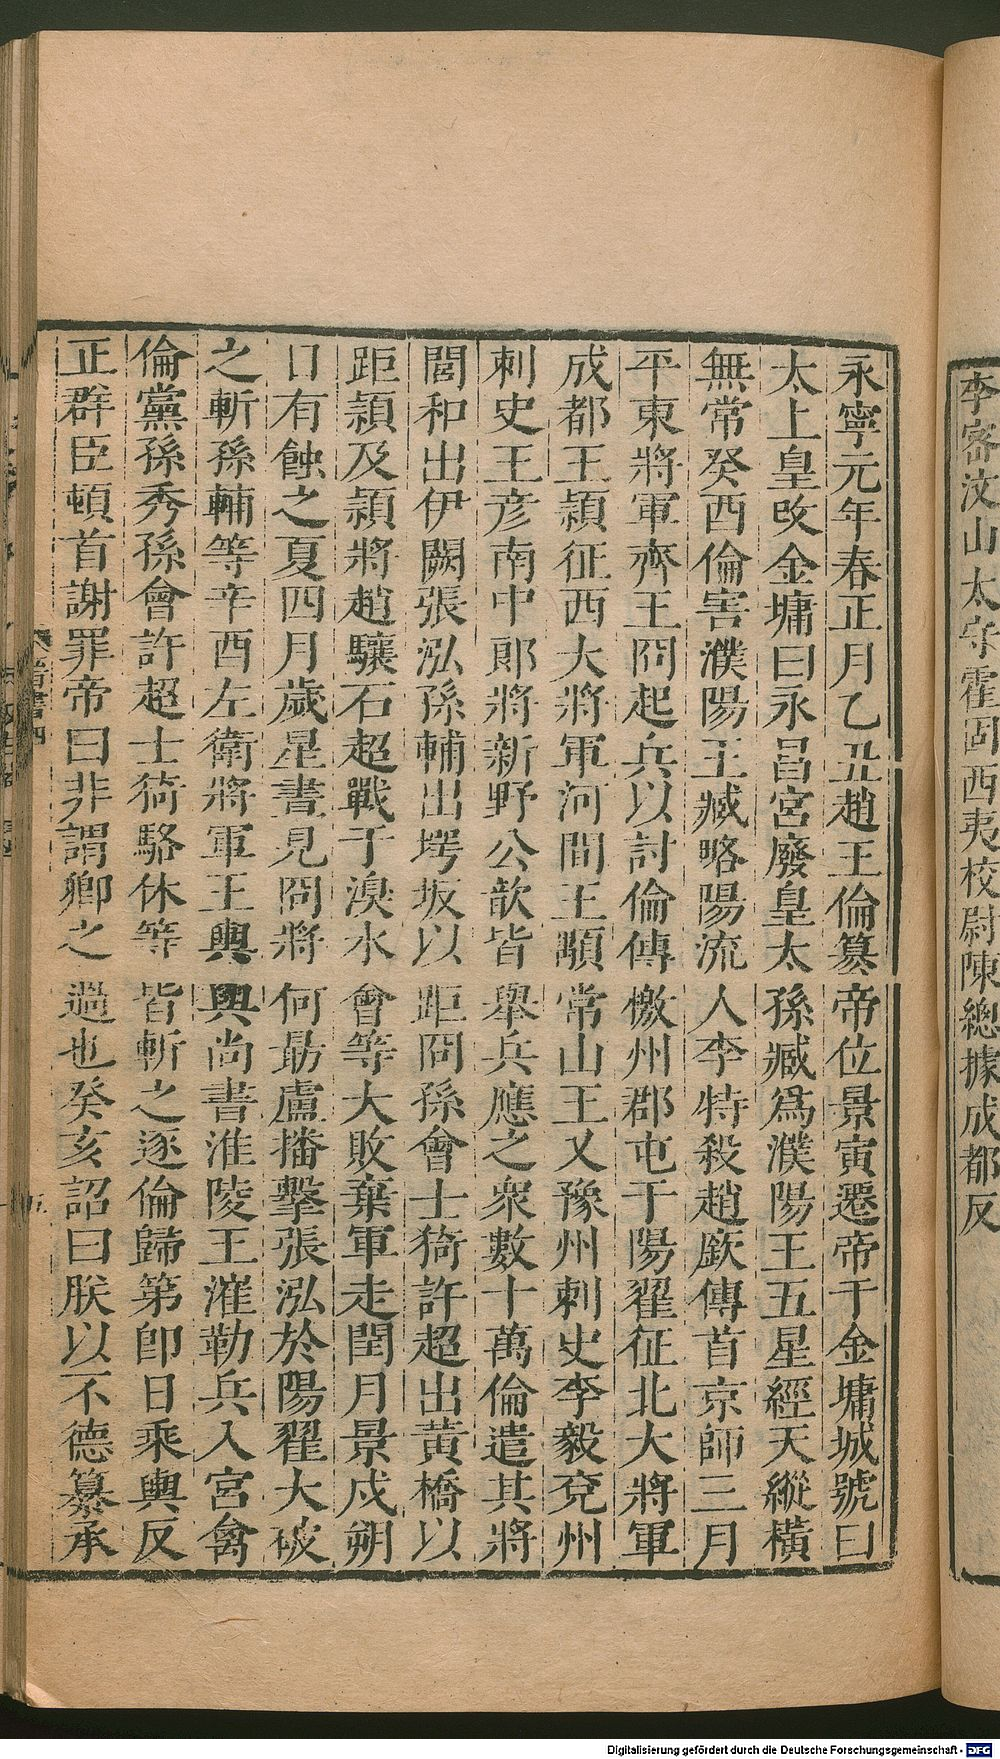 李密汶山太守霍固西夷校尉陳總據成都反
永寧元年春正月乙丑趙王倫篡帝位景寅遷帝于金墉城號曰
太上皇改金墉曰永昌宮廢皇太孫臧爲濮陽王五星經天縱橫
無常癸酉倫害濮陽王臧略陽流人李特殺趙廞傳首京師三月
平東將軍齊王冏起兵以討倫傳檄州郡屯于陽翟征北大將軍
成都王頴征西大將軍河間王顒常山王乂豫州刺史李毅兖州
刺史王彦南中郎將新野公歆皆舉兵應之衆數十萬倫遣其將
閭和出伊闕張泓孫輔出堮坂以距冏孫會士猗許超出黃橋以
距頴及頴將趙驤石超戰于湨水會等大敗棄軍走閏月景戍朔
日有蝕之夏四月歲星晝見冏將何勗盧播擊張泓於陽翟大破
之斬孫輔等辛酉左衛將軍王輿與尚書淮陵王漼勒兵入宮禽
倫黨孫秀孫會許超士猗駱休等皆斬之逐倫歸第卽日乘輿反
正群臣頓首謝罪帝曰非謂卿之過也癸亥詔曰朕以不德纂承
晉書四
Digitalisierung gefördert durch die Deutsche Forschungsgemeinschaft - DFG